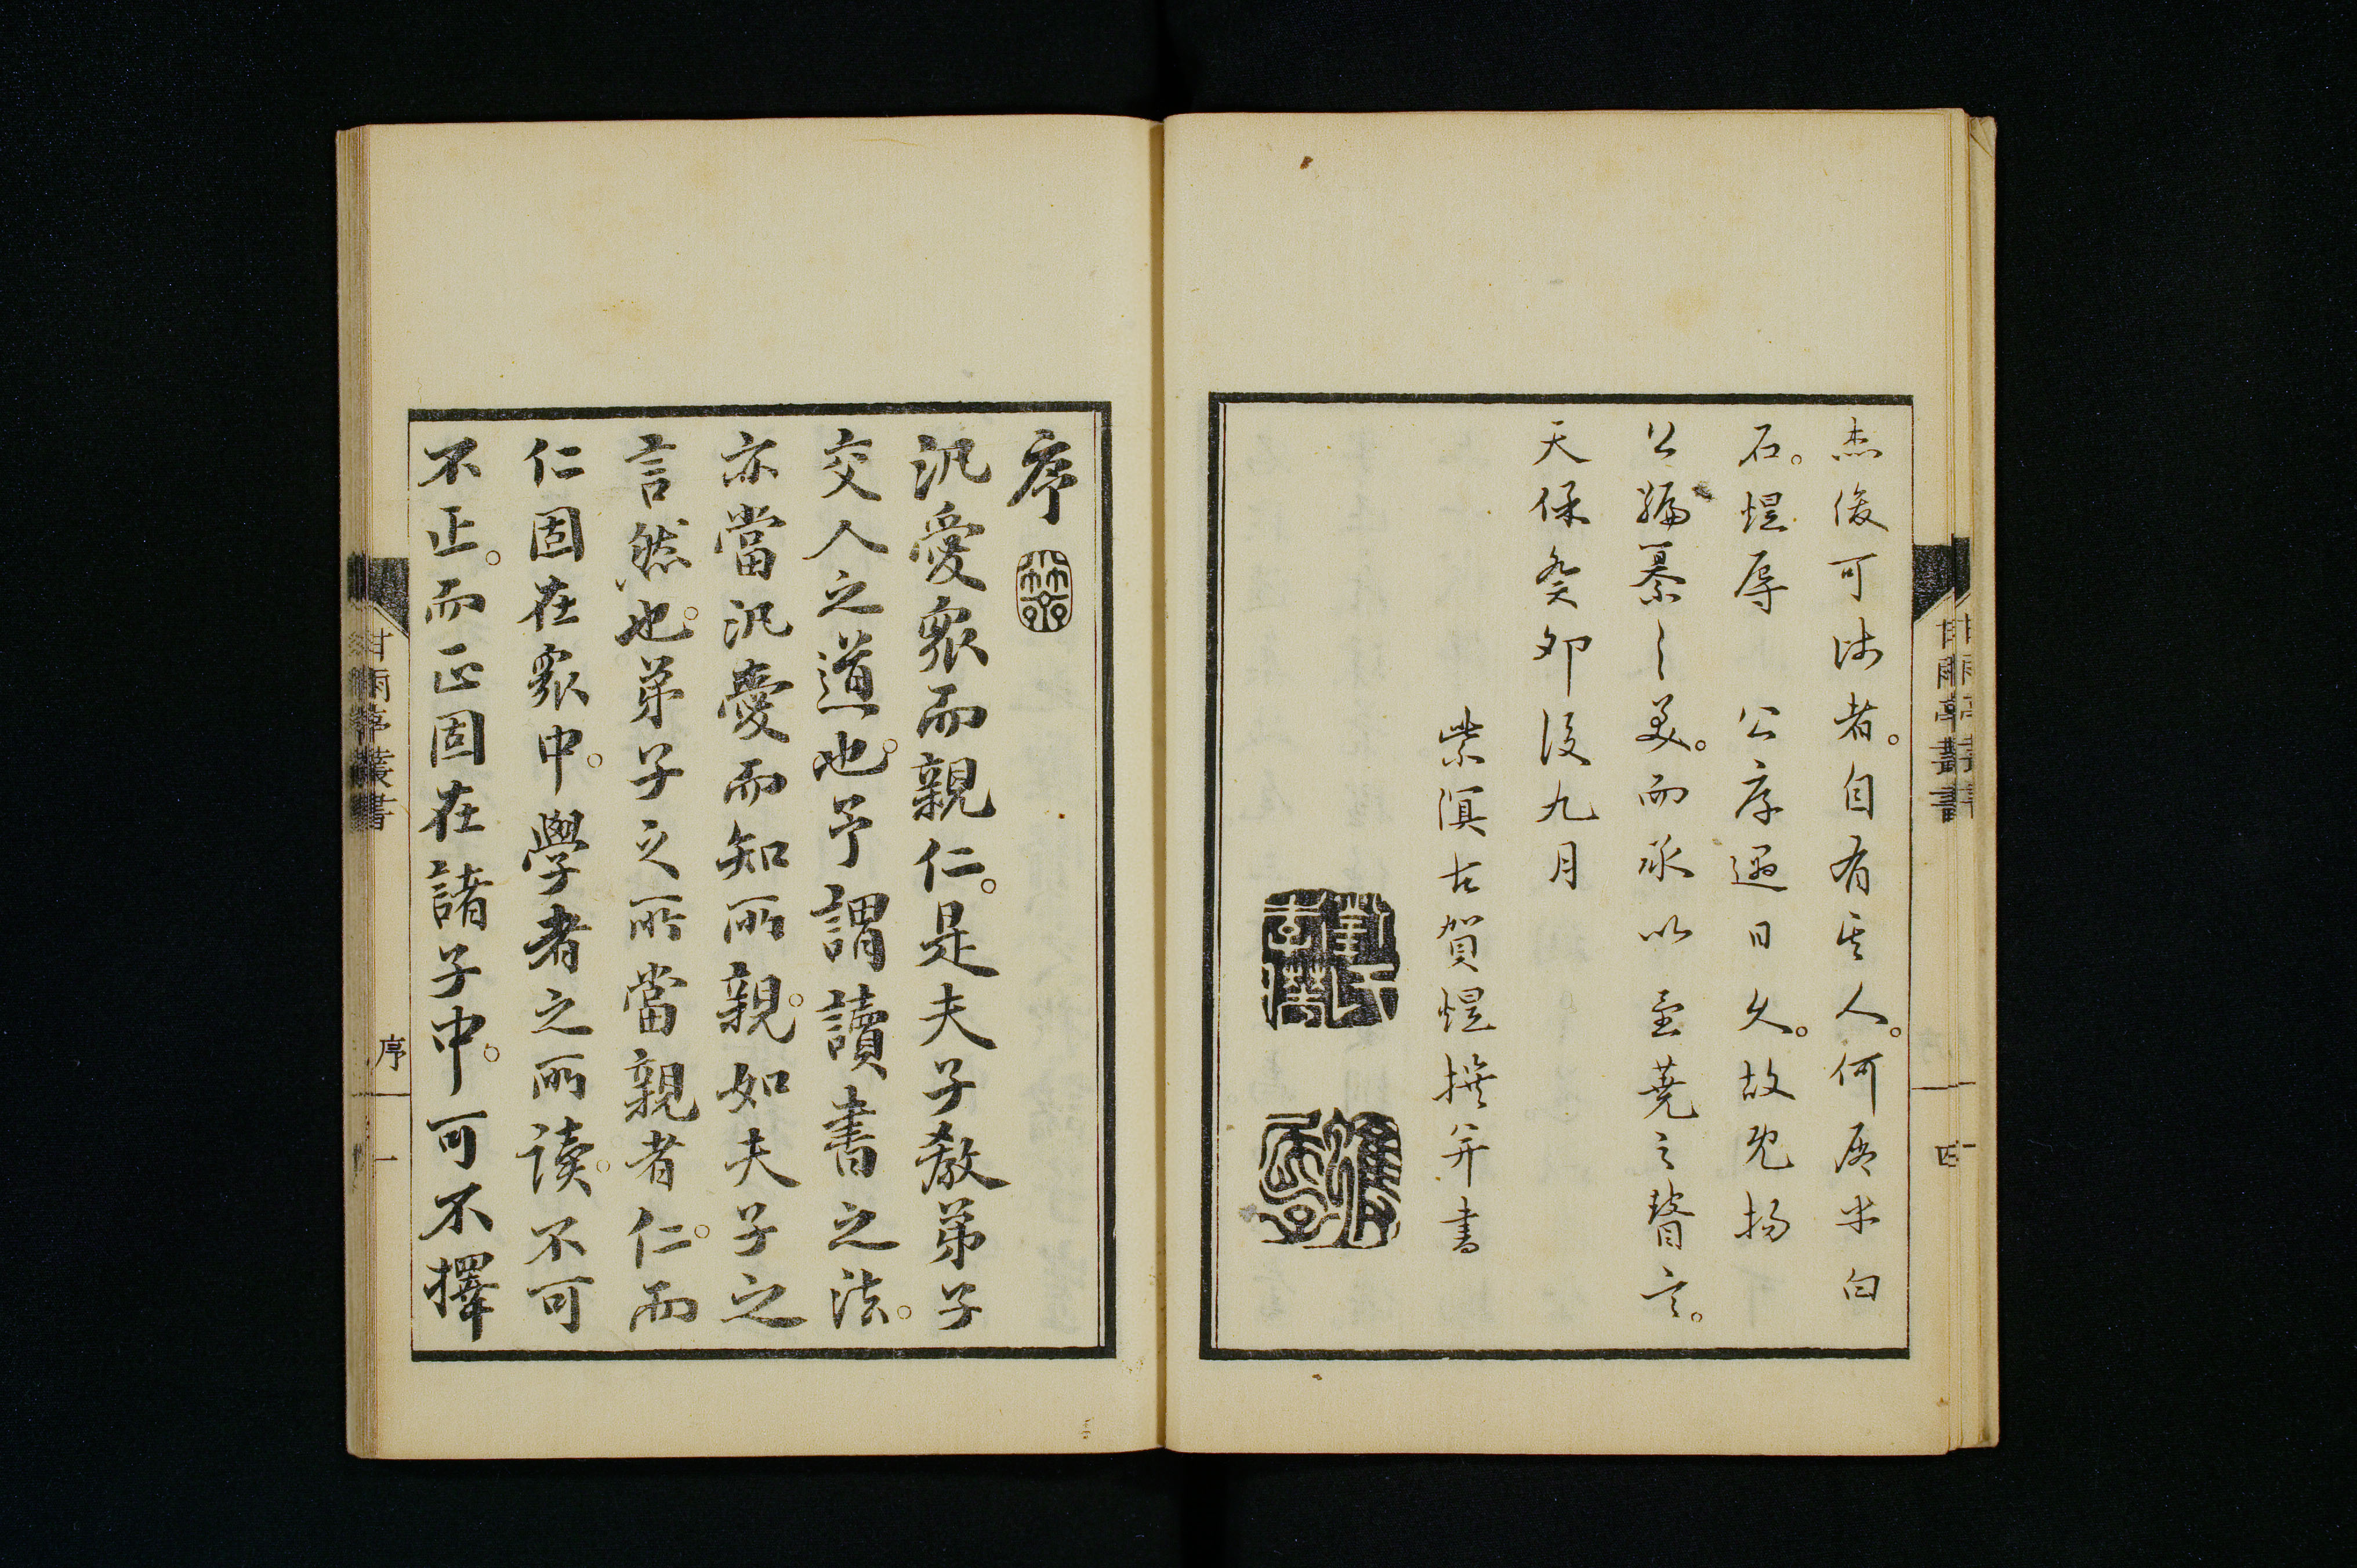 杰後可法者。自有其人。何居米白
石。煜辱　公序遇日久。故先揚
公編纂之美。而承以至蕘之瞽言。
天保癸卯後九月
紫溟古賀煜撰并書
甘雨亭叢書
四
序
汎愛衆而親仁。是夫子教弟子
交人之道也。予謂讀書之法。
亦當汎愛而知所親。如夫子之
言然也。弟子之所當親者仁。而
仁固在衆中。學者之所读。不可
不正。而正固在諸子中。可不擇
甘雨亭叢書
序
一